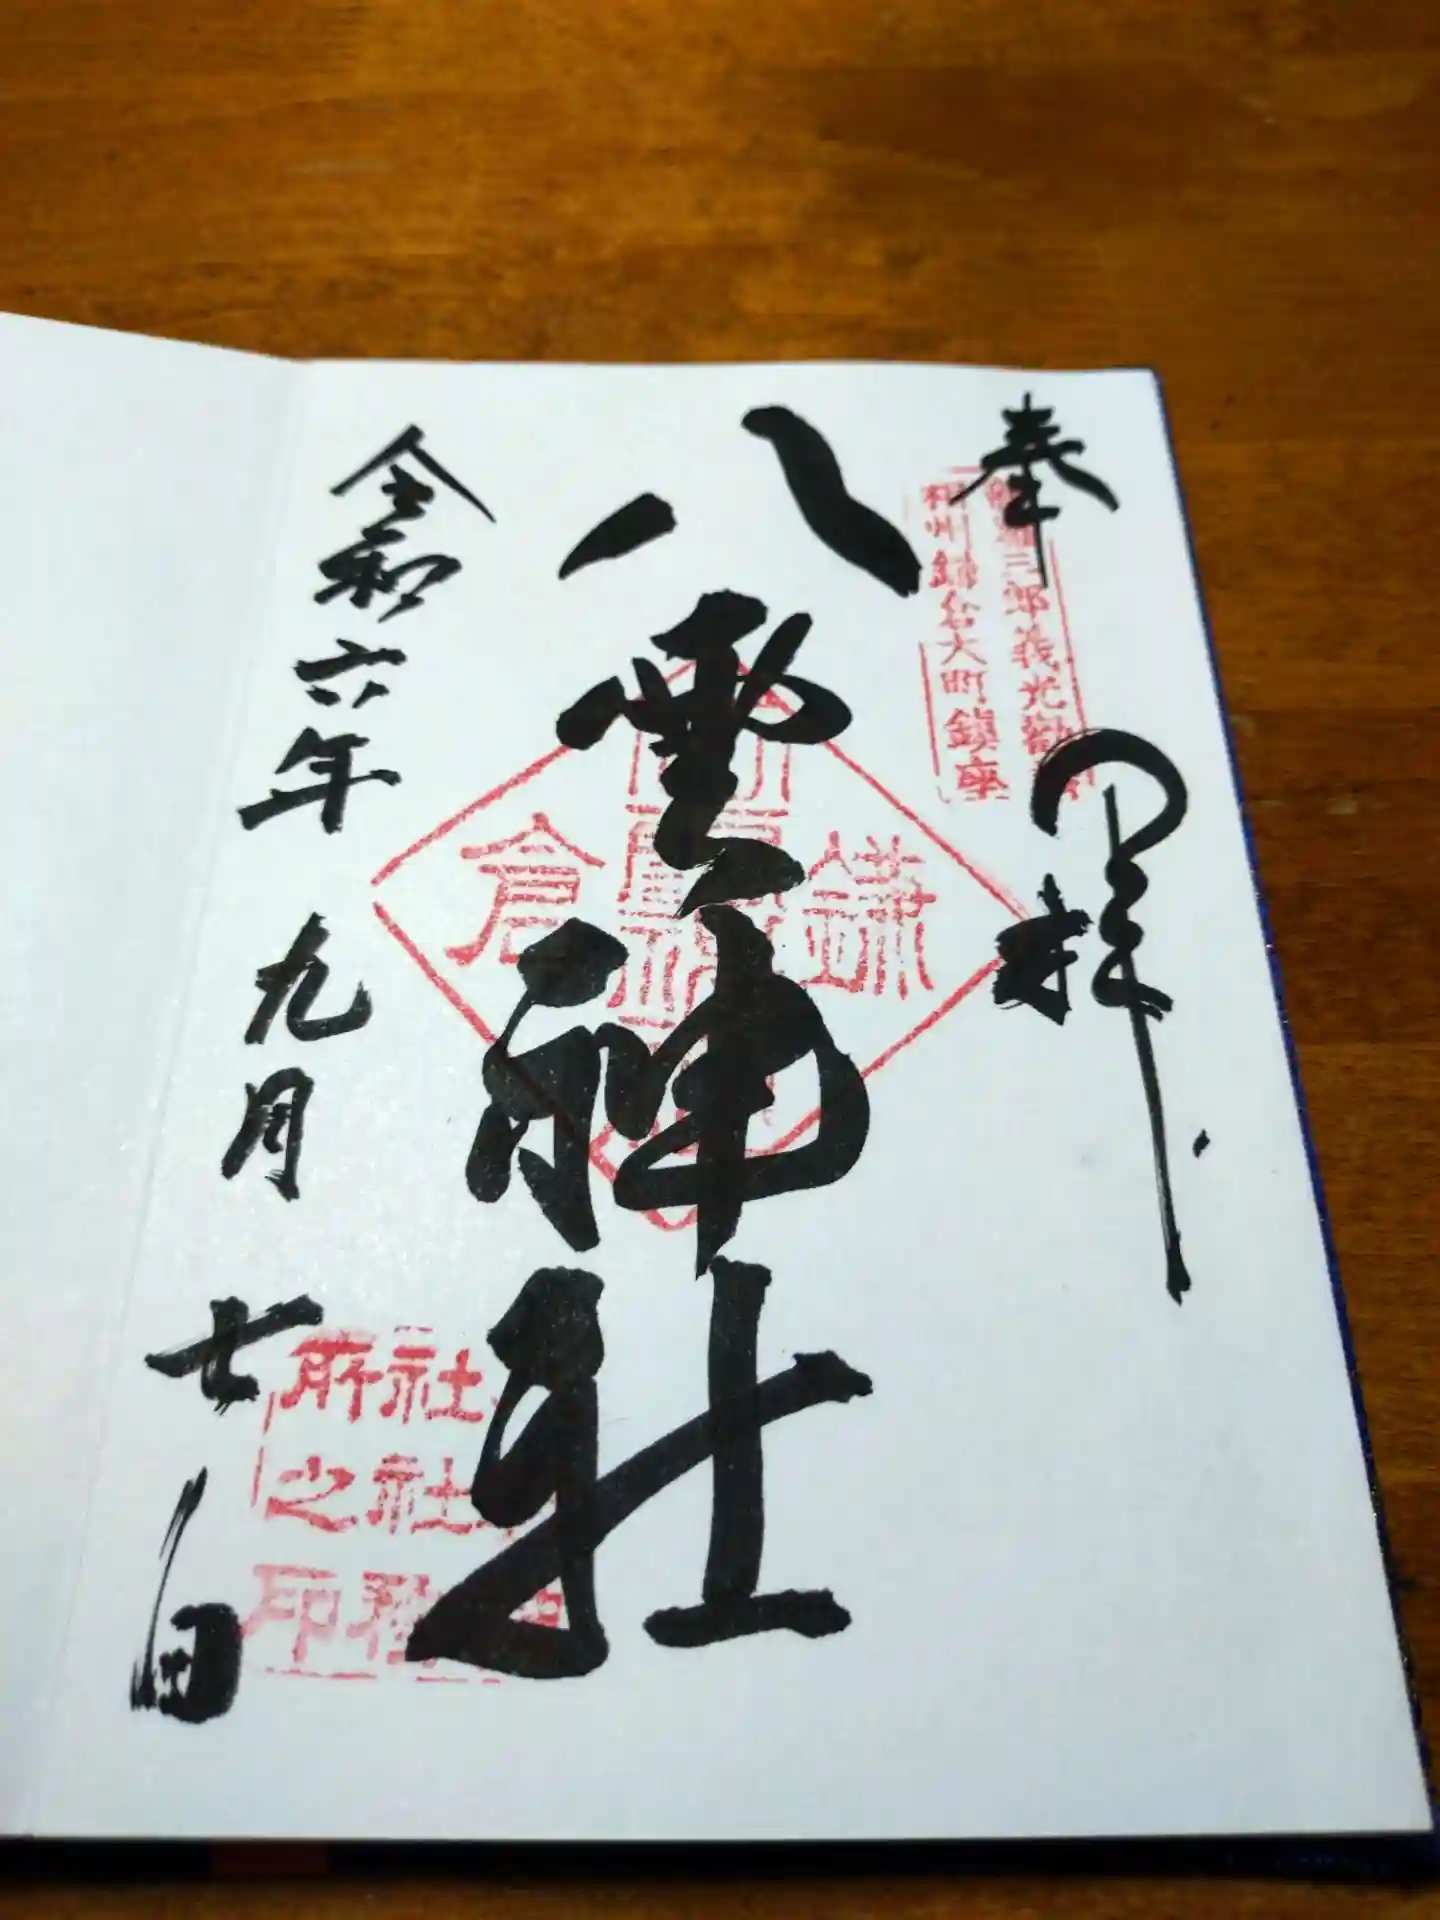 奉
拝
三郎義光勧
相州鎌倉大町鎮座
八雲神社
鎌倉
令和六年九月七日
社
社務
所之印